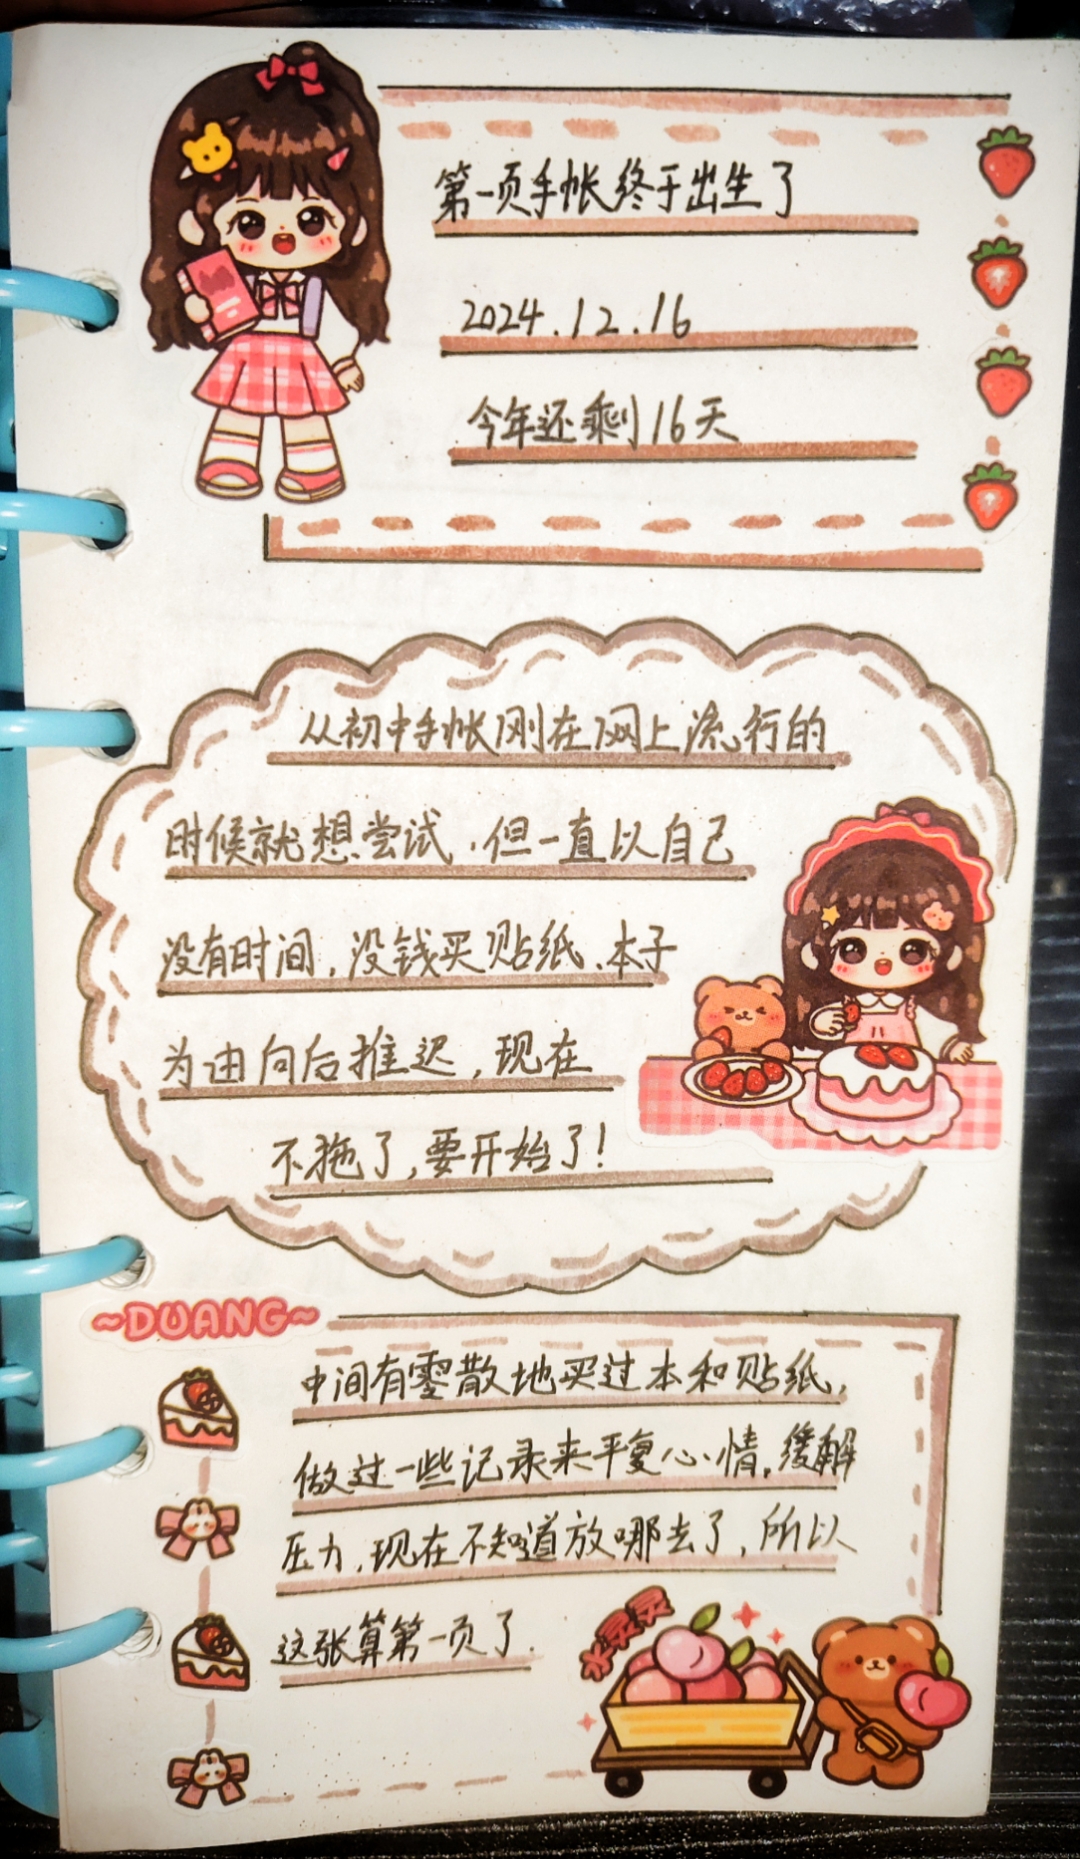 第一页手帐终于出生了
2024.12.16
今年还剩16天
从初中手帐刚在网上流行的
时候就想尝试,但一直以自己
没有时间,没钱买贴纸、本子
为由向后推迟,现在
不拖了,要开始了!
~DUANG~
中间有零散地买过本和贴纸,
做过一些记录来平复心情,缓解
压力,现在不知道放哪去了,所以
这张算第一页了.
水灵灵